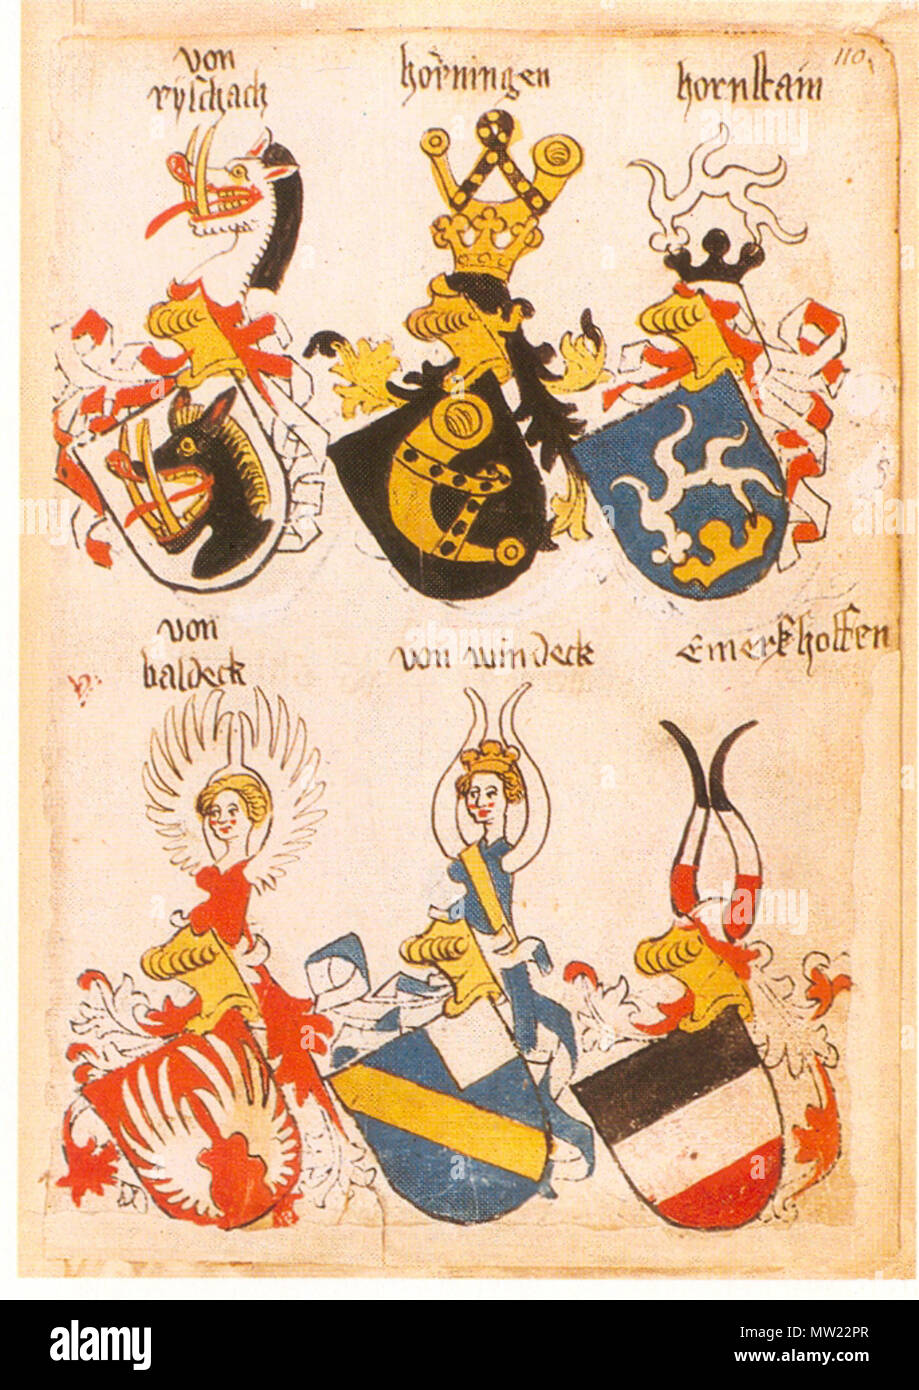 110
von
ryschach
hörningen
hornstain
von
baldeck
von windeck
Emerkhoffen
alamy
Image ID: MW22PR
www.alamy.com